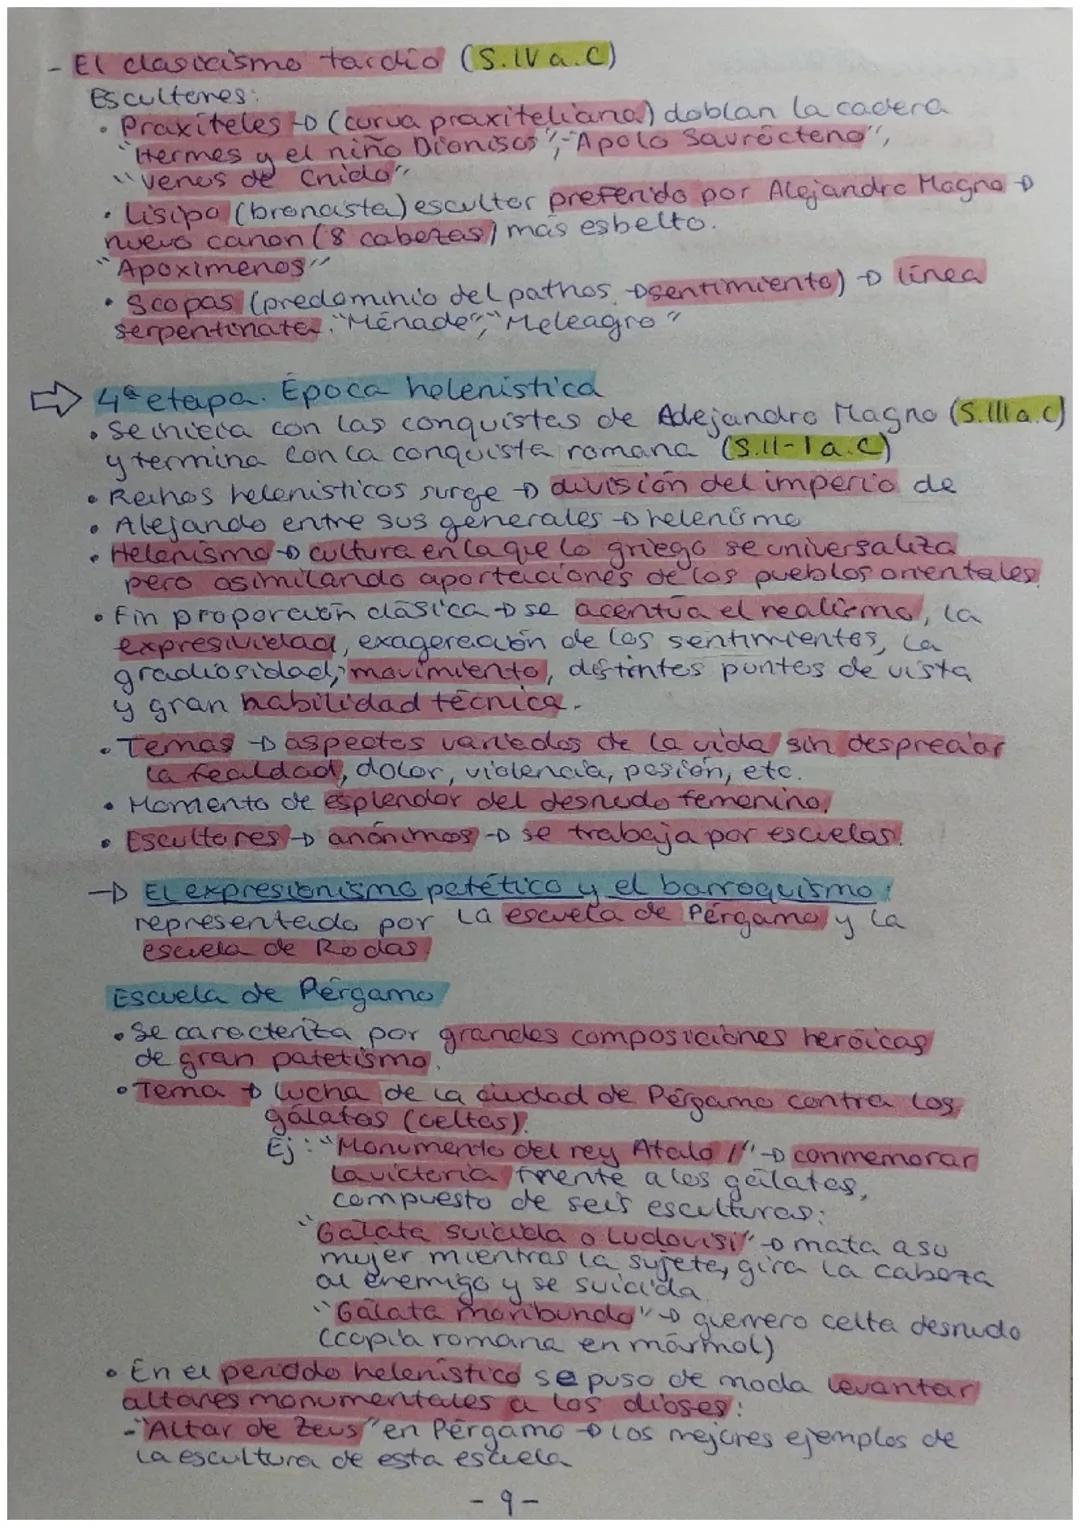 - El clasicismo tardío (S.IV a.C)
Escultores:
· Praxíteles → (curva praxiteliana) doblan la cadera
"Hermes y el niño Dionisos", "Apolo Sauróctono",
"Venus de Cnido"
· Lisipo (broncista) escultor preferido por Alejandro Magno →
nuevo canon (8 cabezas) más esbelto.
"Apoxímenos"
· Scopas (predominio del pathos →sentimiento) → línea
serpentinata. "Ménade", "Meleagro"
⇨ 4ª etapa. Época helenística
· Se inicia con las conquistas de Alejandro Magno (S.III a.C)
y termina con la conquista romana (S.II-I a.C)
· Reinos helenísticos surge → división del imperio de
· Alejando entre sus generales → helenismo
· Helenismo → cultura en la que lo griego se universaliza
pero asimilando aportaciones de los pueblos orientales.
· Fin proporción clásica → se acentúa el realismo, la
expresividad, exageración de los sentimientos, la
gradiosidad, movimiento, distintos puntos de vista
y gran habilidad técnica.
· Temas → aspectos variados de la vida sin despreciar
la fealdad, dolor, violencia, pasión, etc.
· Momento de esplendor del desnudo femenino.
· Escultores → anónimos → se trabaja por escuelas.
→ El expresionismo patético y el barroquismo:
representado por la escuela de Pérgamo y la
escuela de Rodas.
Escuela de Pérgamo
· Se caracteriza por grandes composiciones heroicas
de gran patetismo.
· Tema → lucha de la ciudad de Pérgamo contra los
gálatas (celtas).
Ej: "Monumento del rey Atalo I" → conmemorar
la victoria frente a los gálatas,
compuesto de seis esculturas:
"Gálata suicida o Ludovisi" → mata a su
mujer mientras la sujeta, gira la cabeza
al enemigo y se suicida.
"Gálata moribundo" → guerrero celta desnudo
(copia romana en mármol)
· En el periodo helenístico se puso de moda levantar
altares monumentales a los dioses:
- "Altar de Zeus" en Pérgamo → los mejores ejemplos de
la escultura de esta escuela
- 9 -